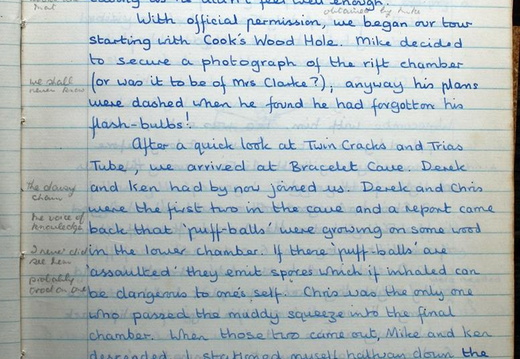 well enough.
obtained by Mike
With official permission, we began our tour
starting with Cook's Wood Hole. Mike decided
to secure a photograph of the rift chamber
we shall
never know
(or was it to be of Mrs Clarke?), anyway his plans
were dashed when he found he had forgotton his
flash-bulbs!
After a quick look at Twin Cracks and Trias
Tube, we arrived at Bracelet Cave. Derek
the daisy
chain
and Ken had by now joined us. Derek and Chris
were the first two in the cave and a report came
he voice of
knowledge
back that 'puff-balls' were growing on some wood
in the lower chamber. If there 'puff-balls' are
I never did
see him
'assaulked' they emit spores which if inhaled can
probably
be dangerous to one's self. Chris was the only one
who passed the muddy squeeze into the final
chamber. When those two came out, Mike and Ken
descended. I stationed myself halfway down the